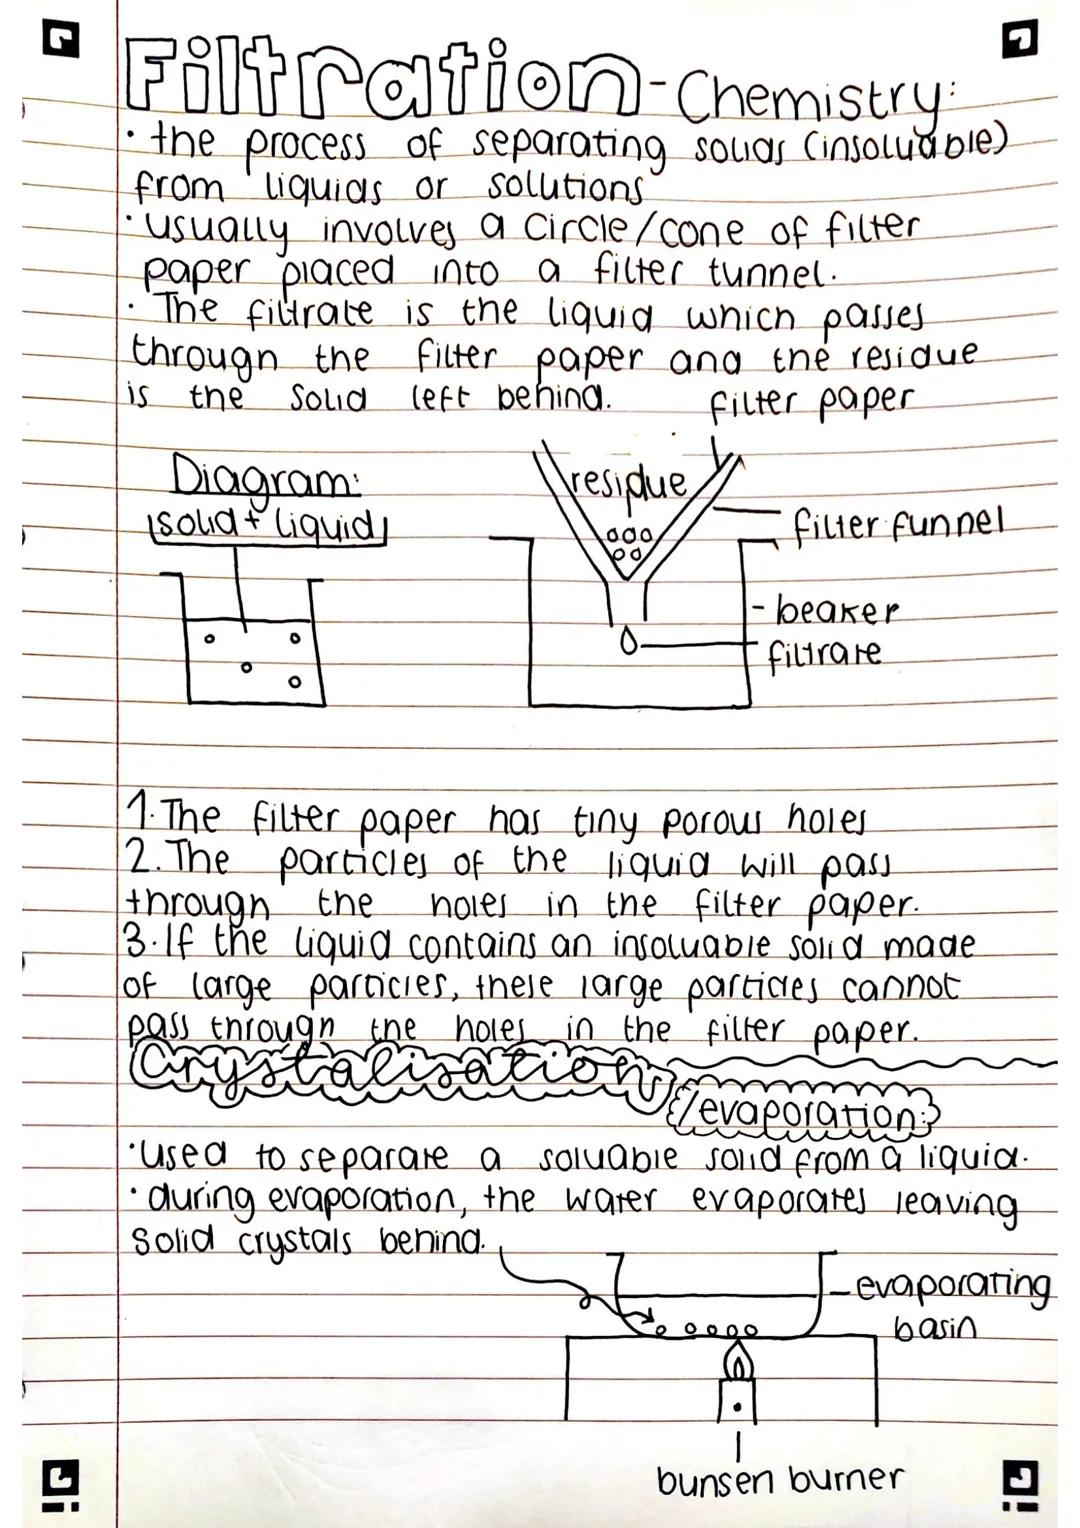 Filtration - Chemistry:
· the process of separating solids (insoluable)
from liquids or solutions
· usually involves a circle/cone of filter
paper placed into a filter tunnel.
· The filtrate is the liquid which passes
through the filter paper and the residue
is the solid left behind.
filter paper
Diagram:
solid + liquid
residue
filter funnel
- beaker
filtrate
1. The filter paper has tiny porous holes
2. The particles of the liquid will pass
through the holes in the filter paper.
3. If the liquid contains an insoluable solid made
of large particles, these large particles cannot
pass through the holes in the filter paper.
Crystalisation
/evaporation:
· used to separate a soluable solid from a liquid.
· during evaporation, the water evaporates leaving
solid crystals behind.
evaporating
basin
bunsen burner